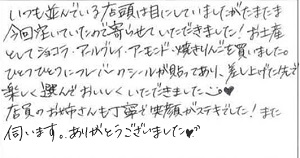 いつも並んでいる店頭は目にしていましたがたまたま
今回空いていたので寄らせていただきました!お土産
としてショコラ・アールグレイ・アーモンド・焼きりんごを買いました。
ひとつひとつにフレーバーのシールが貼ってあり、差し上げた先で
楽しく選んでおいしくいただきました◡̈♥
店員のお姉さんも丁寧で笑顔がステキでした!また
伺います。ありがとうございました♥